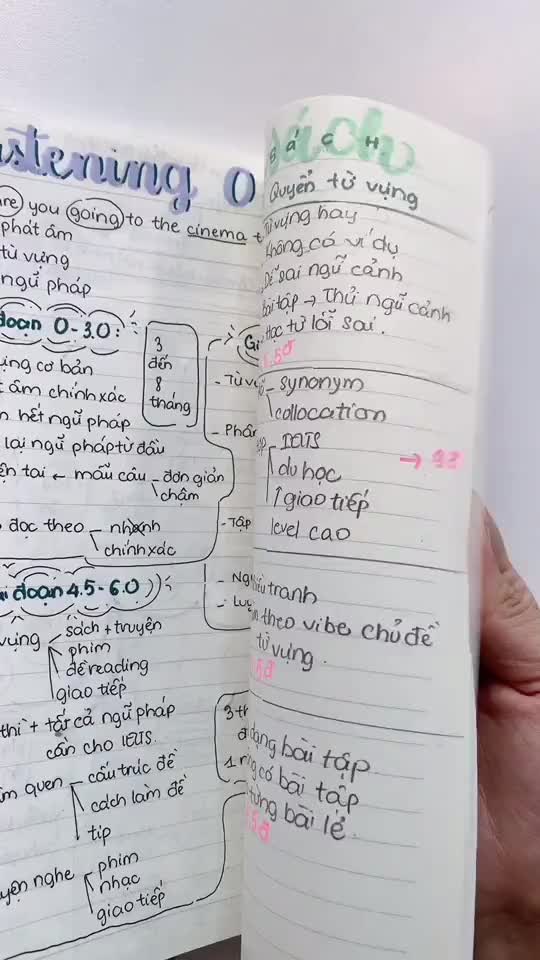 stening 0
are you going to the cinema t
phát âm
từ vựng
ngữ pháp
đoạn 0-3.0:
3
đến
8
tháng
ựng cơ bản
t âm chính xác
n hết ngữ pháp
lại ngữ pháp từ đầu
ện tai ← mẫu câu - đơn giản
chậm
đọc theo - nhanh
chính xác
i đoạn 4.5-6.0
vựng sách + truyện
phim
đề reading
giao tiếp
thì + tất cả ngữ pháp
cần cho IELTS.
m quen - cấu trúc đề
cách làm đề
tip
uyện nghe phim
nhạc
giao tiếp
Gi
- Từ v
- Phần
- Tập
- Ng
- Lu
3 th
đ
1
sách
S á c H
Quyển từ vựng
Từ vựng hay
Không có ví dụ
Dễ sai ngữ cảnh
bài tập → Thử ngữ cảnh
Học từ lỗi sai.
.5đ
- synonym
collocation
- IELTS
du học
↑ giao tiếp
level cao
→
tranh
theo vibe chủ đề
từ vựng.
đ
dạng bài tập
có bài tập
từng bài lẻ
5đ